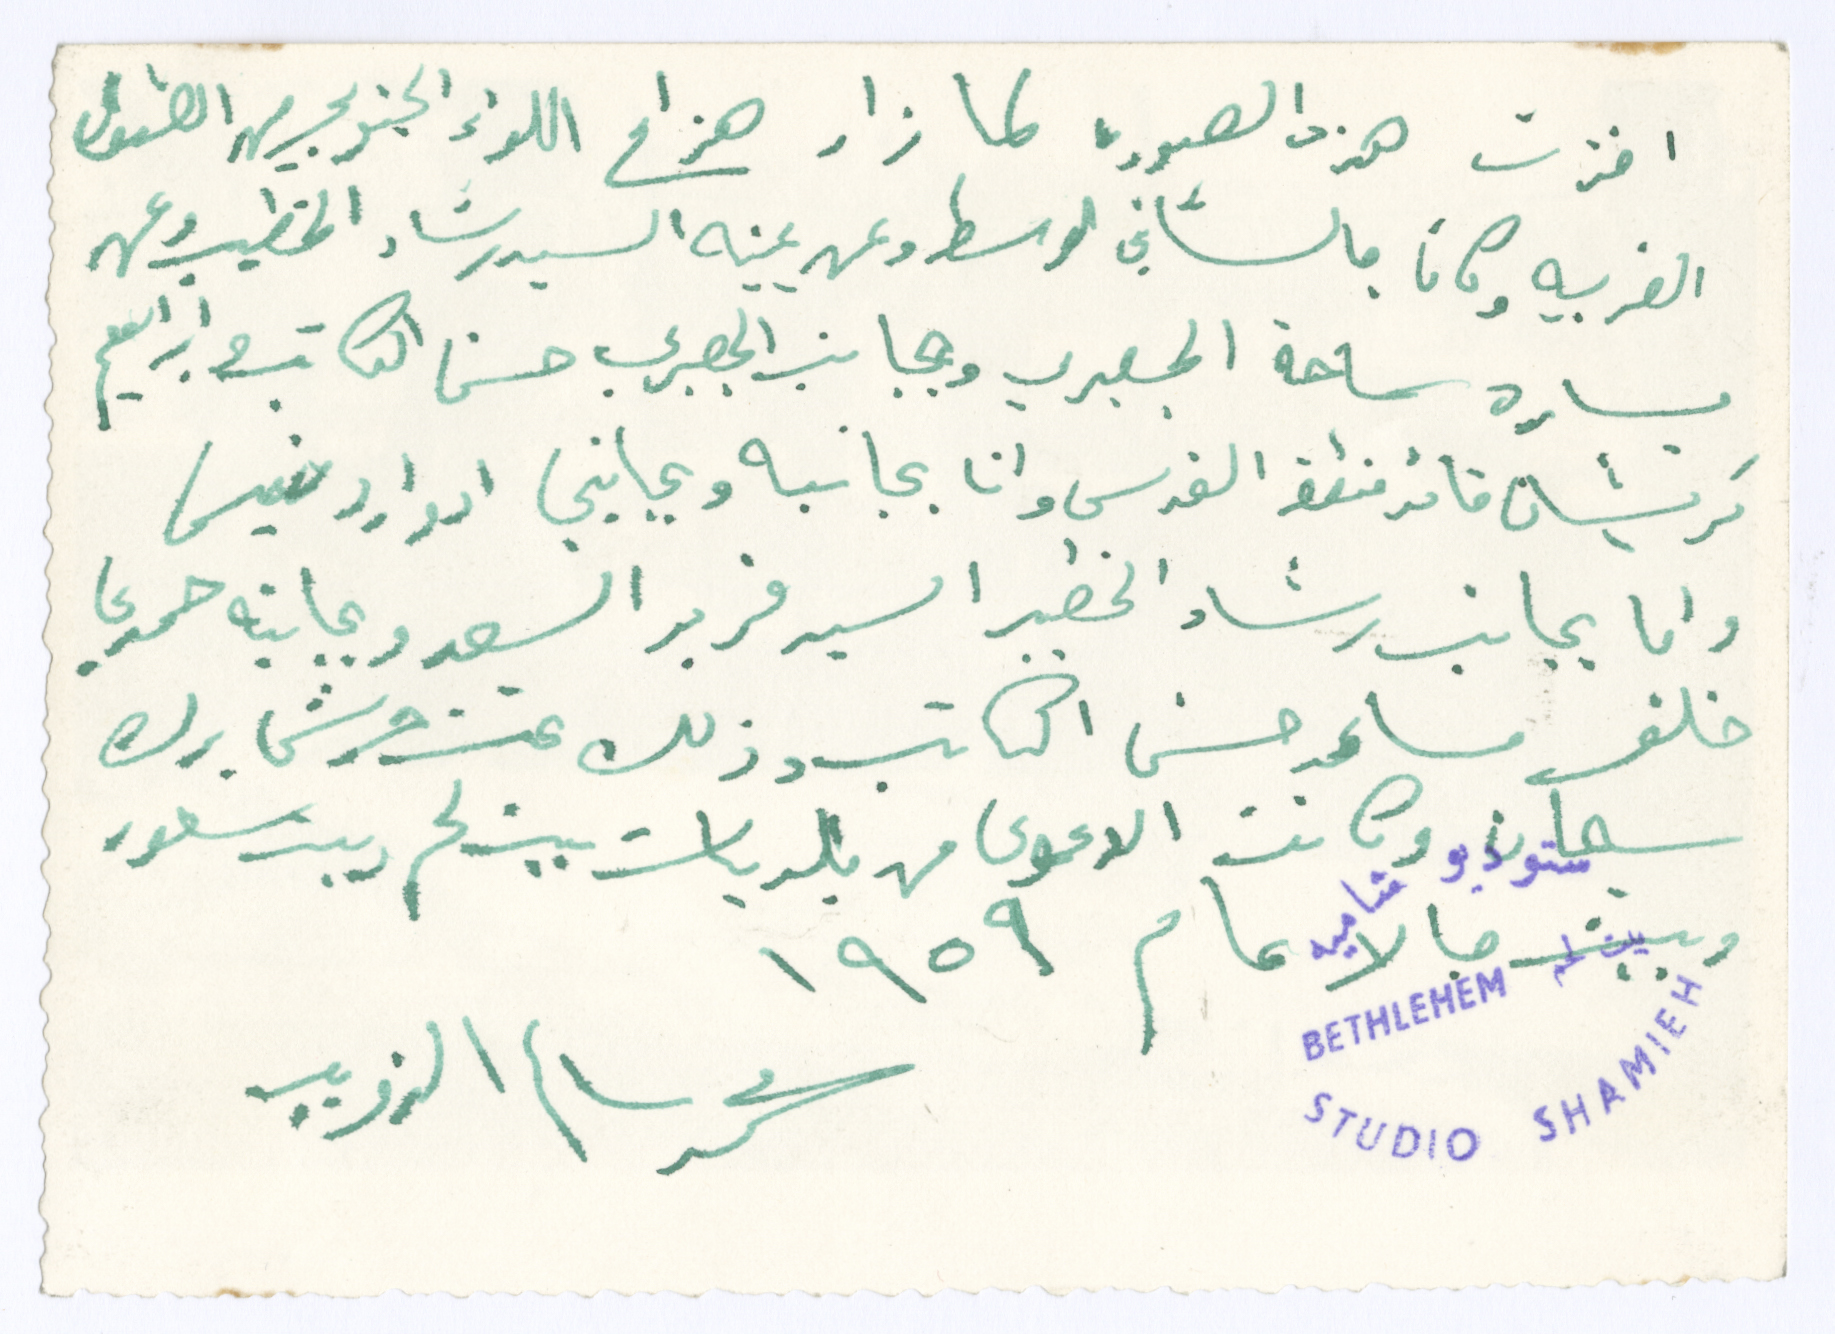 اخذت هذه الصوره لما زار هزاع اللواء الجنوبي من الضفة
الغربيه وكانا جالسان في الوسط وعن يمينه السيد رشاد الخطيب وعن
يساره سماحة الجعبري وبجانب الجعبري حسن الكاتب و ابراهيم
كريشان قائد منطقة القدس وانا بجانبه وبجانبي ادوارد خميس
واما بجانب رشاد الخطيب السيد فريد السعد وبجانبه حمد
خلف مساعد حسن الكاتب وذلك تحت حرش برك
سليمان وكانت الدعوى من بلديات بيت لحم وبيت ساحور
وبيت جالا عام ١٩٥٩
ستوديو شاميه
بيت لحم
BETHLEHEM
STUDIO SHAMIEH